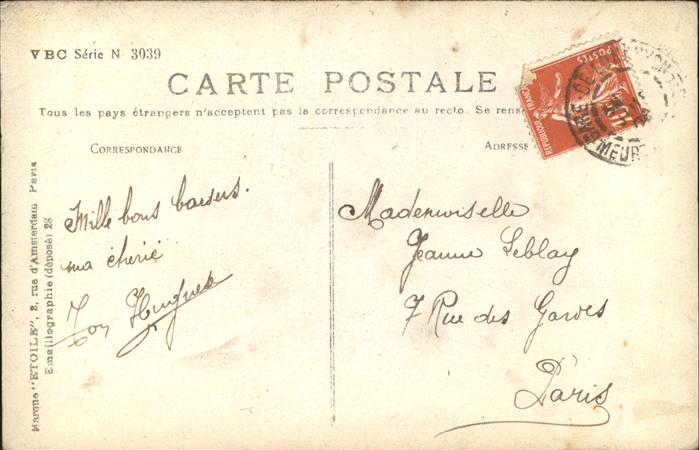 VBC Série N 3039
CARTE POSTALE
Tous les pays étrangers n'acceptent pas la correspondance au recto. Se rens
CORRESPONDANCE
ADRESSE
POSTES
REPUBLIQUE FRANC
10
GARE DE
MEUR
Mille bons baisers
ma chérie
Ton Hugues
Mademoiselle
Jeanne Leblay
7 Rue des Gardes
Paris
Marque "ETOILE", 2, rue d'Amsterdam Paris
Emaillographie (déposé) 23